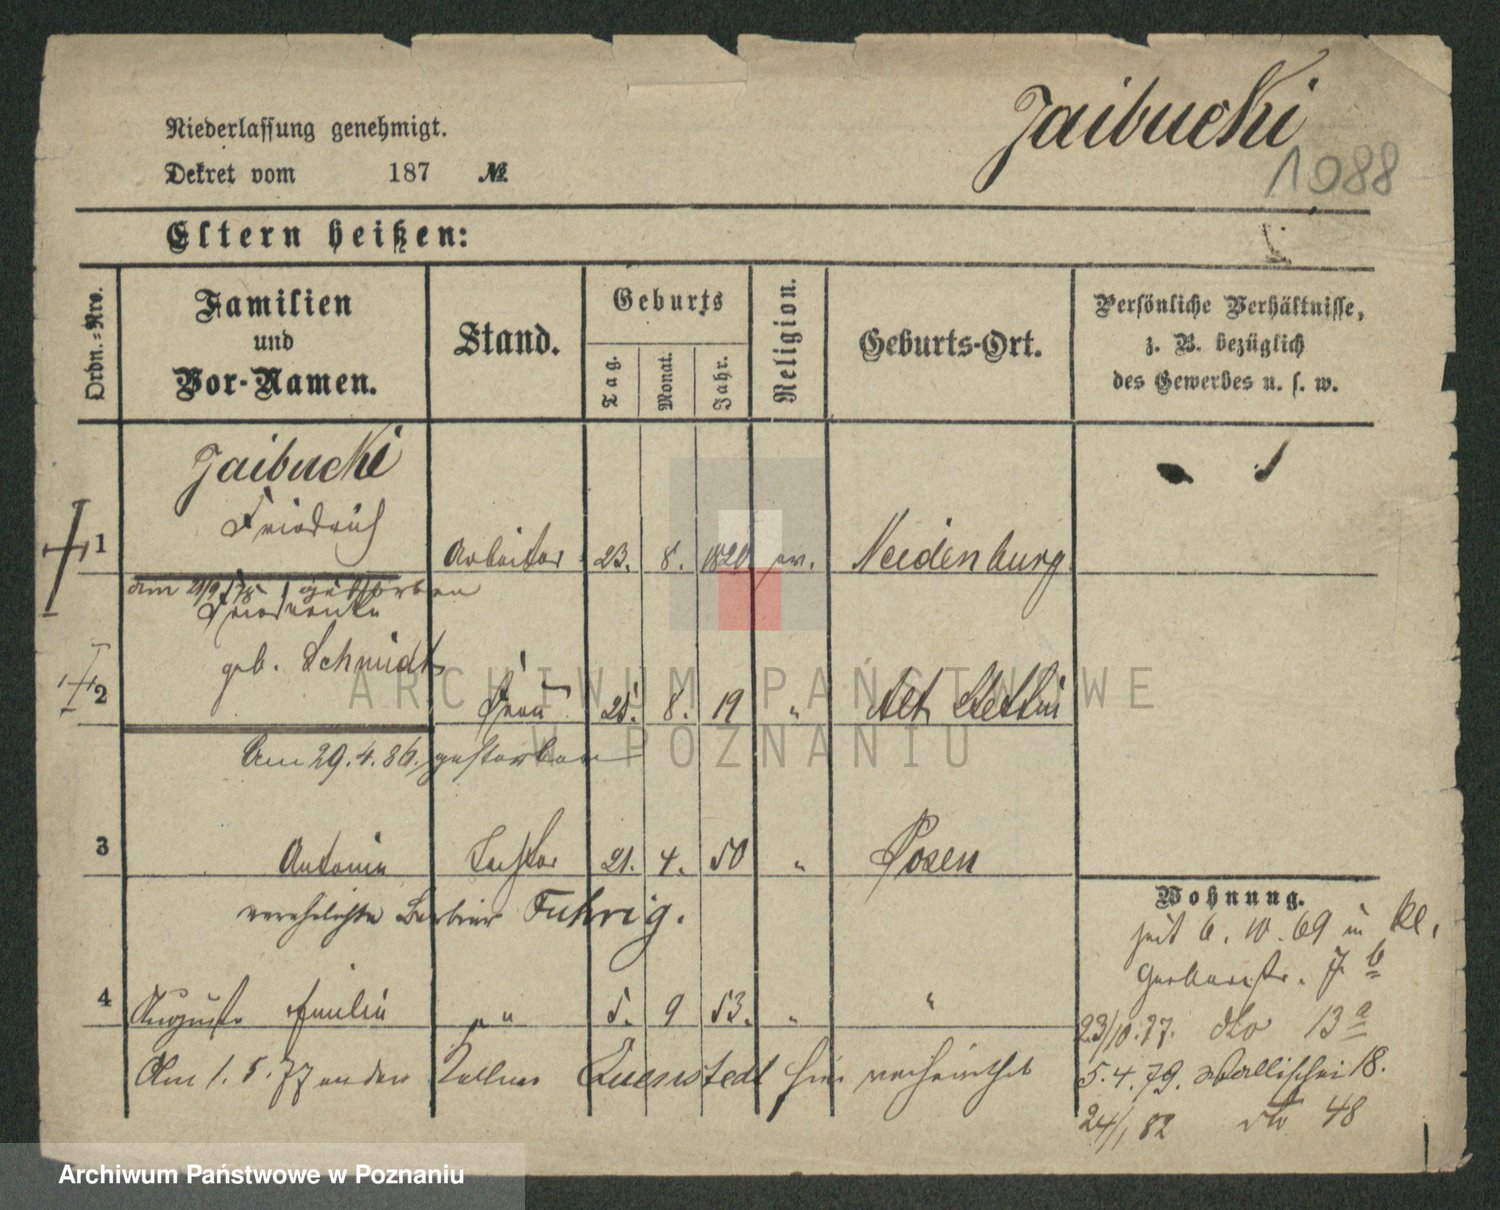 Niederlassung genehmigt.
Dekret vom 187 №
Jaibucki
1088
Eltern heißen:
Ordn.-Nro.
Familien
und
Vor-Namen.
Stand.
Geburts
Tag.
Monat.
Jahr.
Religion.
Geburts-Ort.
Persönliche Verhältnisse,
z. B. bezüglich
des Gewerbes u. s. w.
Jaibucki
Friedrich
1 Arbeiter 23. 8. 1820 ev. Neidenburg
am 21/9 78 gestorben
Friederike
geb. Schmidt
2 Frau 25. 8. 19 " Alt Stettin
Am 29.4.86. gestorben
3 Antonie Tochter 21. 4. 50 " Posen
verehelichte Barbier Fuhrig.
4 Auguste Emilie " " 5. 9 53. " "
Am 1.5.77 an den Kellner Quenstedt hier verheirathet
Wohnung.
seit 6. 10. 69 in Kl.
Gerberstr. 7 b
23/10.77. dto 13 a
5.4.79. Wallischei 18.
24/1 82 dto 48
ARCHIWUM PAŃSTWOWE
W POZNANIU
Archiwum Państwowe w Poznaniu